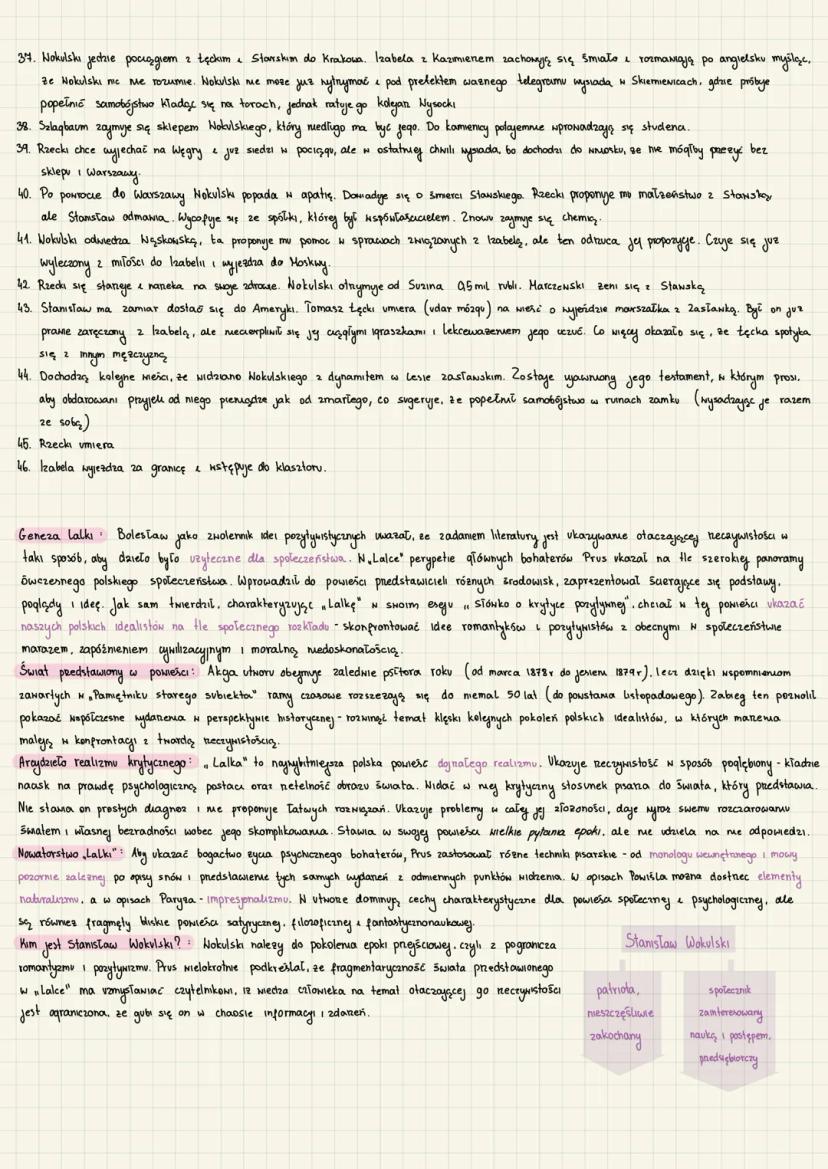 37. Wokulski jedzie pociągiem z Łęckim i Starskim do Krakowa. Izabela z Kazimierzem zachowują się śmiało i rozmawiają po angielsku myśląc,
że Wokulski nic nie rozumie. Wokulski nie może już wytrzymać i pod pretekstem ważnego telegramu wysiada w Skierniewicach, gdzie próbuje
popełnić samobójstwo kładąc się na torach, jednak ratuje go kolejarz Wysocki
38. Szlagbaum zajmuje się sklepem Wokulskiego, który niedługo ma być jego. Do kamienicy potajemnie wprowadzają się studenci.
39. Rzecki chce wyjechać na Węgry i już siedzi w pociągu, ale w ostatniej chwili wysiada, bo dochodzi do wniosku, że nie mógłby przeżyć bez
sklepu i Warszawy.
40. Po powrocie do Warszawy Wokulski popada w apatię. Dowiaduje się o śmierci Stawskiego. Rzecki proponuje mu małżeństwo z Stawską,
ale Stanisław odmawia. Wycofuje się ze spółki, której był współwłaścicielem. Znowu zajmuje się chemią.
41. Wokulski odwiedza Wąsowską, ta proponuje mu pomoc w sprawach związanych z Izabelą, ale ten odrzuca jej propozycje. Czuje się już
wyleczony z miłości do Izabelii i wyjeżdża do Moskwy.
42. Rzecki się starzeje i narzeka na swoje zdrowie. Wokulski otrzymuje od Suzina 0,5 mil rubli. Marczewski żeni się z Stawską
43. Stanisław ma zamiar dostać się do Ameryki. Tomasz Łęcki umiera (udar mózgu) na wieść o wyjeździe marszałka z Zasławka. Był on już
prawie zaręczony z Izabelą, ale niecierpliwił się jej ciągłymi igraszkami i lekceważeniem jego uczuć. Co więcej okazało się, że Łęcka spotyka
się z innym mężczyzną
44. Dochodzą kolejne wieści, że widziano Wokulskiego z dynamitem w lesie zasławskim. Zostaje ujawniony jego testament, w którym prosi,
aby obdarowani przyjęli od niego pieniądze jak od zmarłego, co sugeruje, że popełnił samobójstwo w ruinach zamku (wysadzając je razem
ze sobą)
45. Rzecki umiera
46. Izabela wyjeżdża za granicę i wstępuje do klasztoru.
Geneza Lalki: Bolesław jako zwolennik idei pozytywistycznych uważał, że zadaniem literatury jest ukazywanie otaczającej rzeczywistości w
taki sposób, aby dzieło było użyteczne dla społeczeństwa. W „Lalce" perypetie głównych bohaterów Prus ukazał na tle szerokiej panoramy
ówczesnego polskiego społeczeństwa. Wprowadził do powieści przedstawicieli różnych środowisk, zaprezentował ścierające się podstawy,
poglądy i idee. Jak sam twierdził, charakteryzując „Lalkę" w swoim eseju „Słówko o krytyce pozytywnej", chciał w tej powieści ukazać
naszych polskich idealistów na tle społecznego rozkładu - skonfrontować idee romantyków i pozytywistów z obecnymi w społeczeństwie
marazem, zapóźnieniem cywilizacyjnym i moralną niedoskonałością.
Świat przedstawiony w powieści: Akcja utworu obejmuje zalednie półtora roku (od marca 1878r do jesieni 1879r), lecz dzięki wspomnieniom
zawartych w „Pamiętniku starego subiekta" ramy czasowe rozszerzają się do niemal 50 lat (do powstania listopadowego). Zabieg ten pozwolił
pokazać współczesne wydarzenia w perspektywie historycznej - rozwinąć temat klęski kolejnych pokoleń polskich idealistów, w których marzenia
maleją w konfrontacji z twardą rzeczywistością.
Arcydzieło realizmu krytycznego: „Lalka" to najwybitniejsza polska powieść dojrzałego realizmu. Ukazuje rzeczywistość w sposób pogłębiony - kładzie
nacisk na prawdę psychologiczną postaci oraz rzetelność obrazu świata. Widać w niej krytyczny stosunek pisarza do świata, który przedstawia.
Nie stawia on prostych diagnoz i nie proponuje łatwych rozwiązań. Ukazuje problemy w całej jej złożoności, daje wyraz swemu rozczarowaniu
światem i własnej bezradności wobec jego skomplikowania. Stawia w swojej powieści wielkie pytania epoki, ale nie udziela na nie odpowiedzi.
Nowatorstwo „Lalki": Aby ukazać bogactwo życia psychicznego bohaterów, Prus zastosował różne techniki pisarskie - od monologu wewnętrznego i mowy
pozornie zależnej po opisy snów i przedstawienie tych samych wydarzeń z odmiennych punktów widzenia. W opisach Powiśla można dostrzec elementy
naturalizmu, a w opisach Paryża - impresjonizmu. W utworze dominują cechy charakterystyczne dla powieści społecznej i psychologicznej, ale
są również fragmęty bliskie powieści satyrycznej, filozoficznej i fantastycznonaukowej.
Kim jest Stanisław Wokulski?: Wokulski należy do pokolenia epoki przejściowej, czyli z pogranicza
romantyzmu i pozytywizmu. Prus wielokrotnie podkreślał, że fragmentaryczność świata przedstawionego
w „Lalce" ma uzmysławiać czytelnikowi, iż wiedza człowieka na temat otaczającej go rzeczywistości
jest ograniczona, że gubi się on w chaosie informacji i zdarzeń.
Stanisław Wokulski
patriota,
nieszczęśliwie
zakochany
społecznik
zainteresowany
nauką i postępem,
przedsiębiorczy